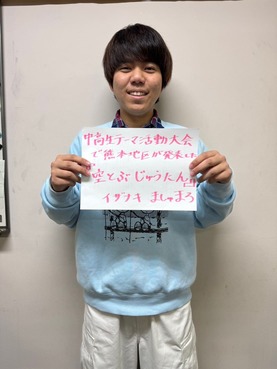 中高生テーマ活動大会
で熊本地区が発表した
空とぶじゅうたん
イガラキ ましゅまろ